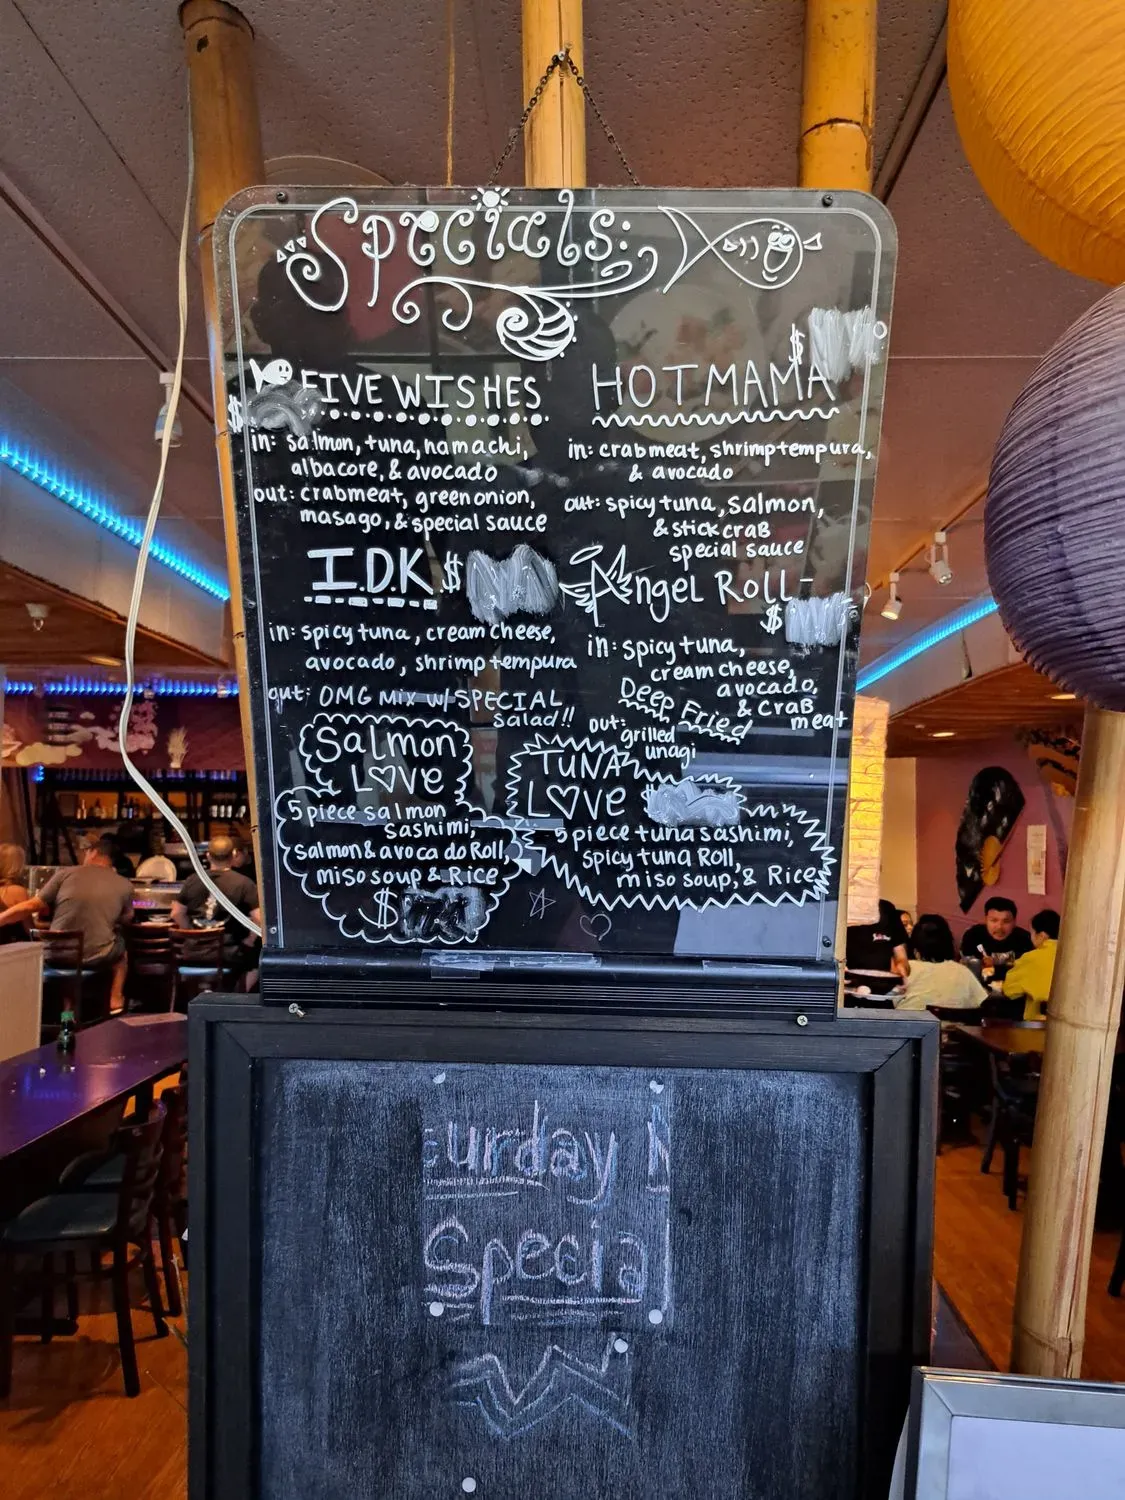 Specials:
$
FIVE WISHES
in: salmon, tuna, hamachi,
albacore, & avocado
out: crabmeat, green onion,
masago, & special sauce
$
HOT MAMA
in: crabmeat, shrimp tempura,
& avocado
out: spicy tuna, salmon,
& stick craB
special sauce
I.D.K $
in: spicy tuna, cream cheese,
avocado, shrimp tempura
out: OMG Mix w/ SPECIAL
salad!!
Angel Roll-
$
in: spicy tuna,
cream cheese,
avocado,
& craB
meat
Deep Fried
out: grilled
unagi
Salmon
LOVe
5 piece salmon
sashimi,
salmon & avocado Roll,
miso soup & Rice
$
TUNA
LOVe $
5 piece tuna sashimi,
spicy tuna Roll,
miso soup, & Rice
turday N
Special